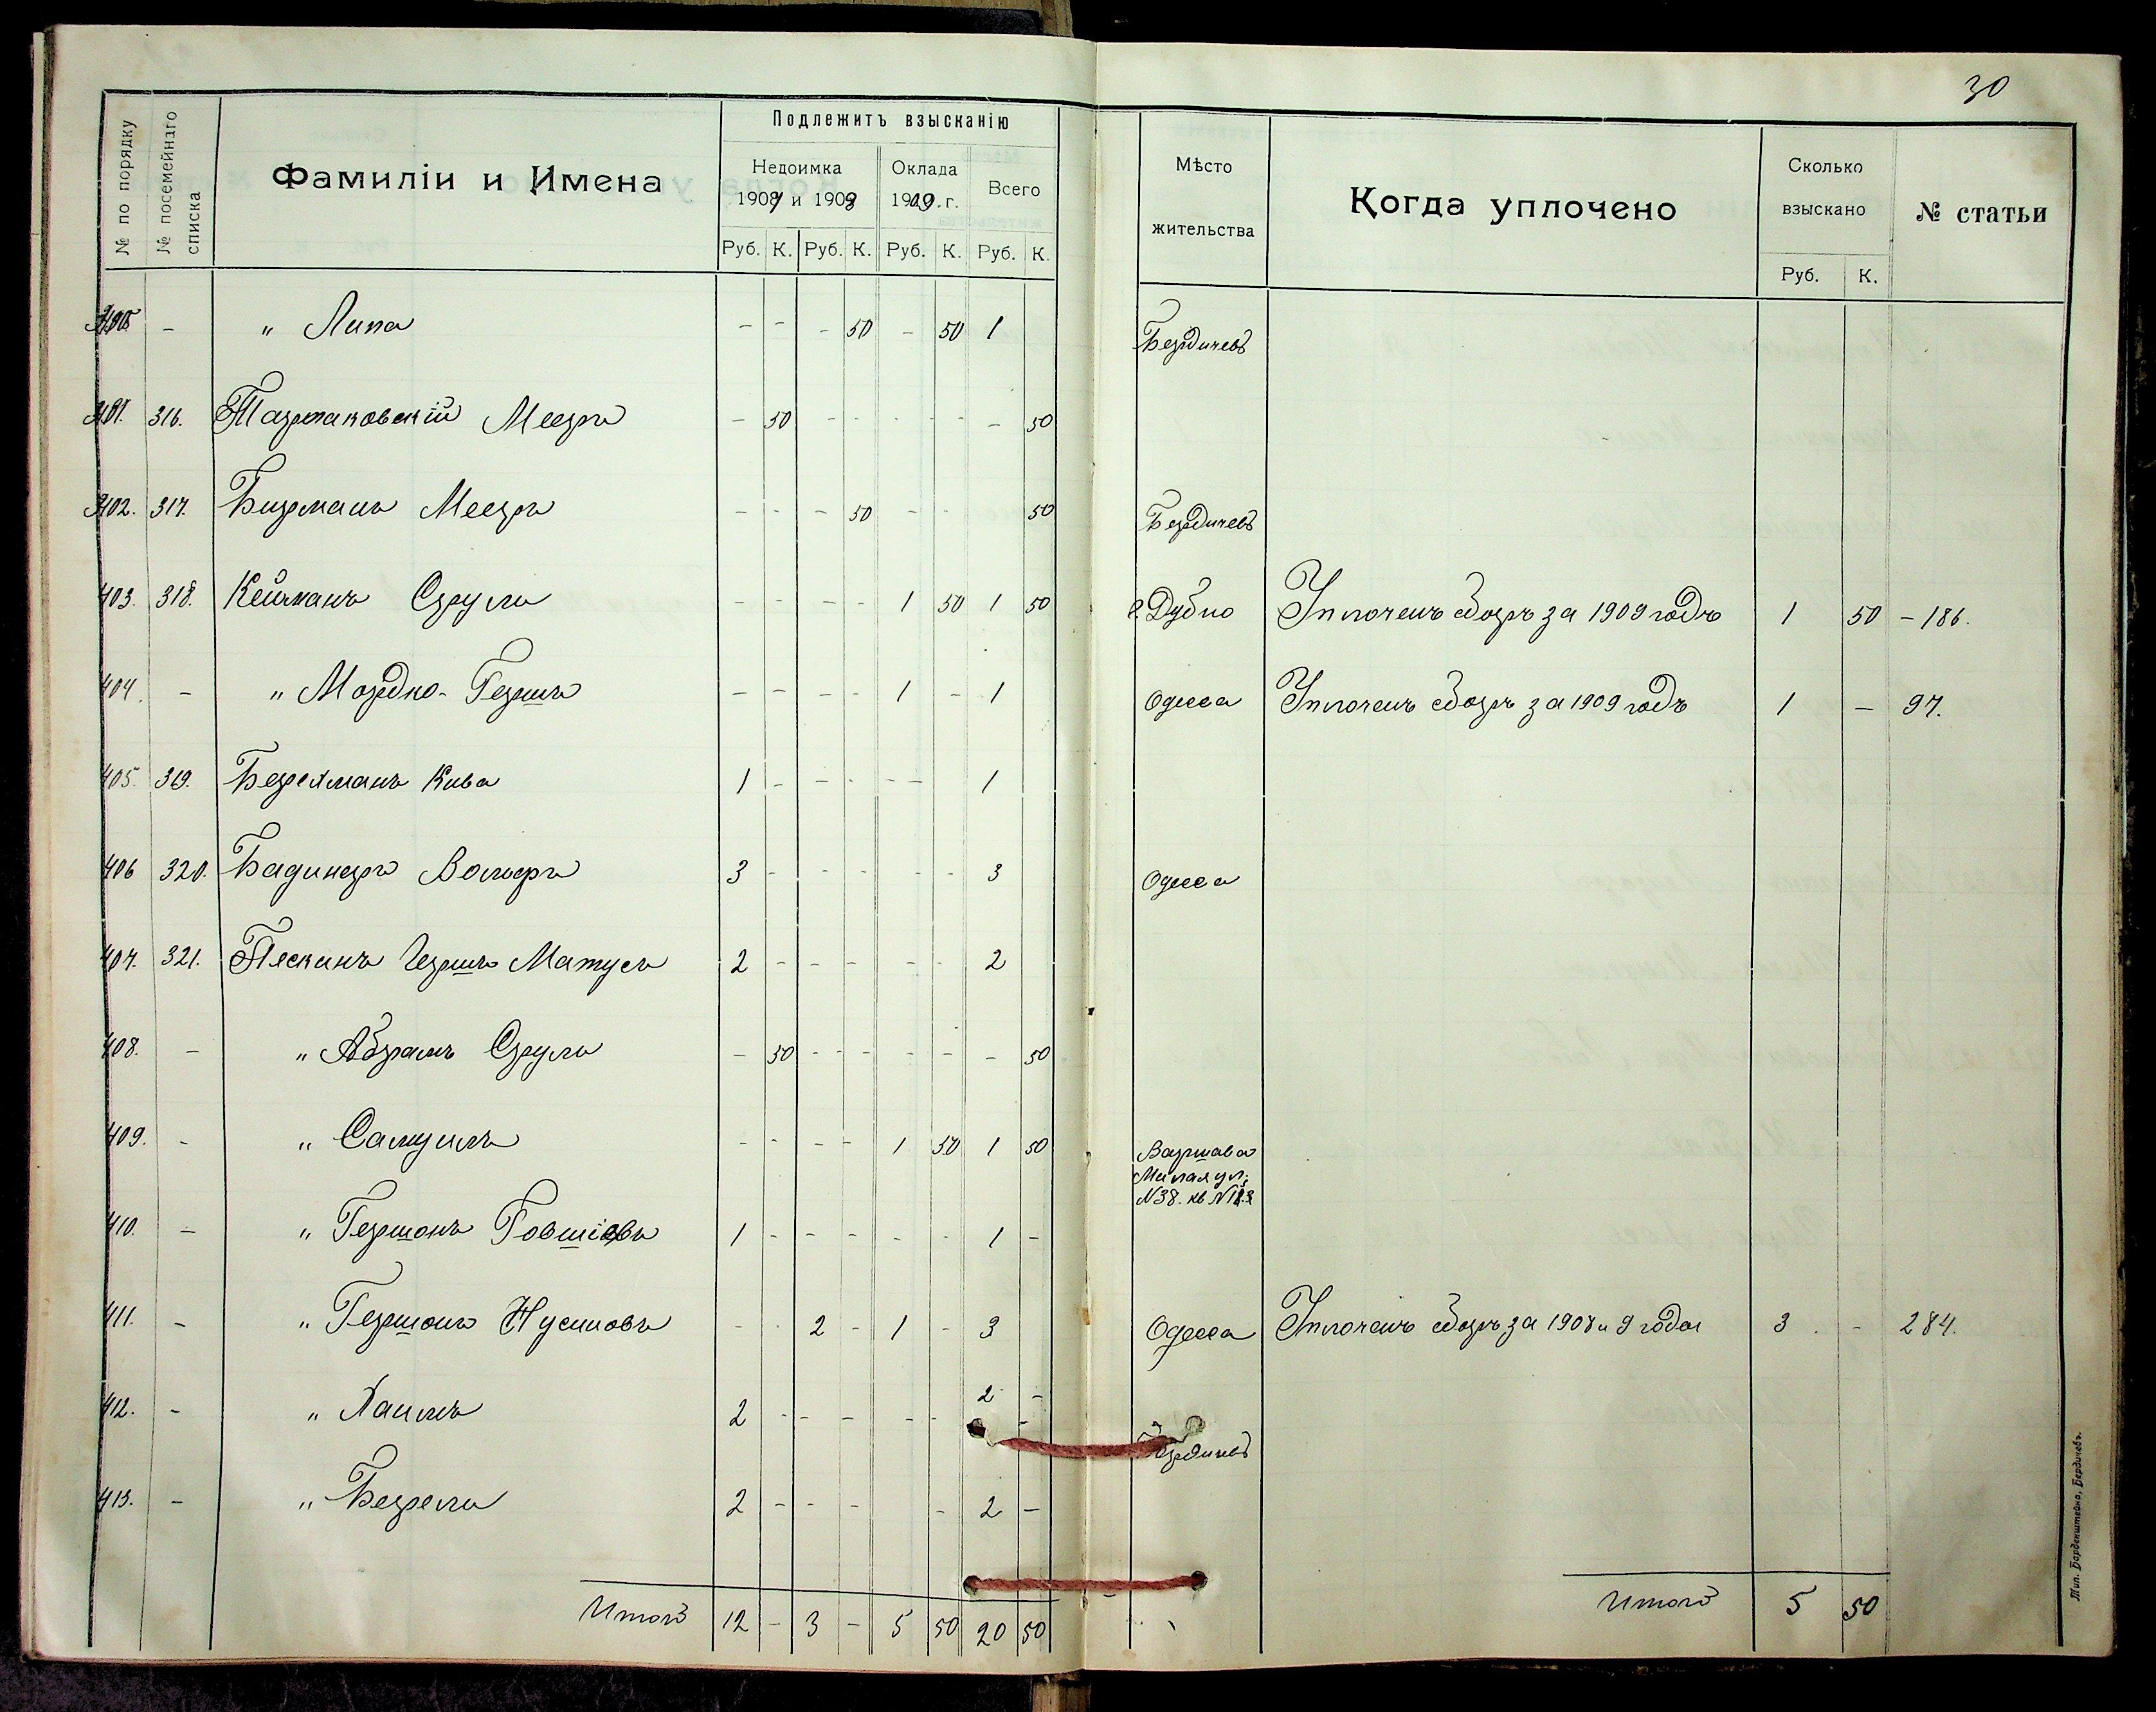 30
№ по порядку
№ посемейнаго списка
Фамиліи и Имена
Подлежитъ взысканію
Недоимка
1907 и 1908
Оклада
1909 г.
Всего
Руб. К. Руб. К. Руб. К. Руб. К.
Мѣсто
жительства
Когда уплочено
Сколько
взыскано
Руб. К.
№ статьи
400. - " Липа - - - 50 - 50 1 Бердичевъ
401. 316. Тартаковскій Мееръ - 50 - - - - - 50
402. 317. Бирманъ Мееръ - - - 50 - - 50 Бердичевъ
403. 318. Кейманъ Сруль - - - - 1 50 1 50 г. Дубно Уплоченъ сборъ за 1909 годъ 1 50 - 186.
404. - " Мордко-Гершъ - - - - 1 - 1 Одесса Уплоченъ сборъ за 1909 годъ 1 - 97.
405. 319. Берехманъ Кива 1 - - - - - 1
406 320. Бадинеръ Вольфъ 3 - - - - - 3 Одесса
407. 321. Пескинъ Гершъ Матусъ 2 - - - - - 2
408. - " Абрамъ Сруль - 50 - - - - - 50
409. - " Самуилъ - - - - 1 50 1 50 Варшава
Милая ул.
N 38. кв N
410. - " Гершонъ Говшіовъ 1 - - - - - 1 -
411. - " Гершонъ Нусиновъ - - 2 - 1 - 3 Одесса Уплоченъ сборъ за 1908 и 9 года 3 - 284.
412. - " Хаимъ 2 - - - - - 2 -
Бердичевъ
413. - " Берель 2 - - - - 2 -
Итого 12 - 3 - 5 50 20 50
Итого 5 50
Тип. Барденштейна, Бердичевъ.